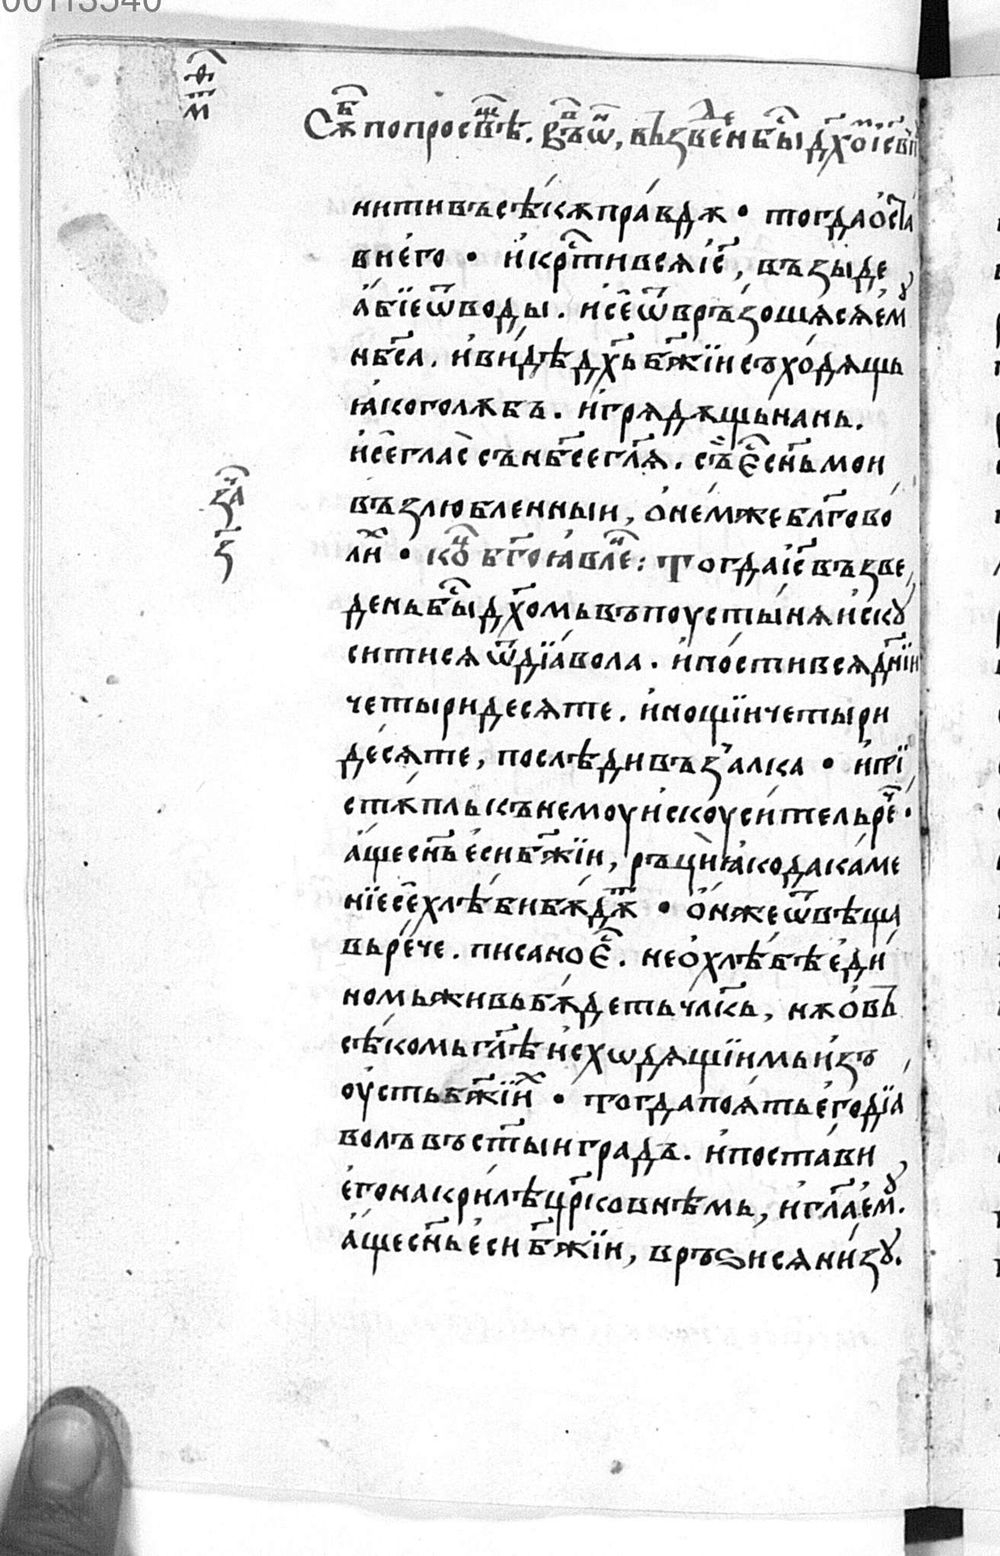 00113540
Сѫ҃б попросвⷳ҇ѣ. въ ѿ, възвⷣенбы҃ дх҃омі҃с въп
нитивъсѣ́кѫпра́вдѫ • тогдао́ста
вие́го • и҆кр҃тивсѧі҃с, въꙁыде
а҆́бїеѿводы. и҆се҃ѿвръ́ꙁошѧсѧе҆мꙋ
нб҃са. и҆ви́дѣдх҃ьбж҃їисъхо́дѧщь
ꙗ҆коголѫбъ. и҆грѧдѫ́щьнань.
и҆се҃гла́ссънб҃сегл҃ѧ. съе҃сн҃ьмои
въꙁлюбленныи, о҆не́мжебл҃гово
ли҃ • ко҃ бг҃оꙗвле҃: Тогдаі҃свъꙁве
деньбы҃дх҃омьвъпоусты́нѧи҆скꙋ
ситисѧѿдїа́вола. и҆пости́всѧдн҃їи
четыридесѧте. и҆нощїичетыри
десѧте, послѣдивъꙁа́лка • и҆прї
стѫпльк​ънемоуи҆скоуси́тельре҃ч •
а҆́щесн҃ье҆сибж҃їи, ръциꙗ҆кодака́ме
нїесе҃хлѣ́бибѫ́дѫт • о҆́нжеѿвѣща
вьре́че. писаное҃. нео҆хлѣ́бѣе҆ди́
номьживьбѫ́детьчл҃кь, нѫо҆въ
сѣ́комьгл҃ѣи҆схѡдѧщїимьи҆ꙁъ
оу҆стьбж҃їих • тогдапоѧ́тье҆годїа
волъвъст҃ыиградъ. и҆поста́ви
е҆гонакрилѣ́цр҃ковнѣмь, и҆гл҃ае҆мꙋ.
а҆́щесн҃ье҆сибж҃їи, връѕисѧни́ꙁꙋ.
ꙁа҃
ꙁ҃